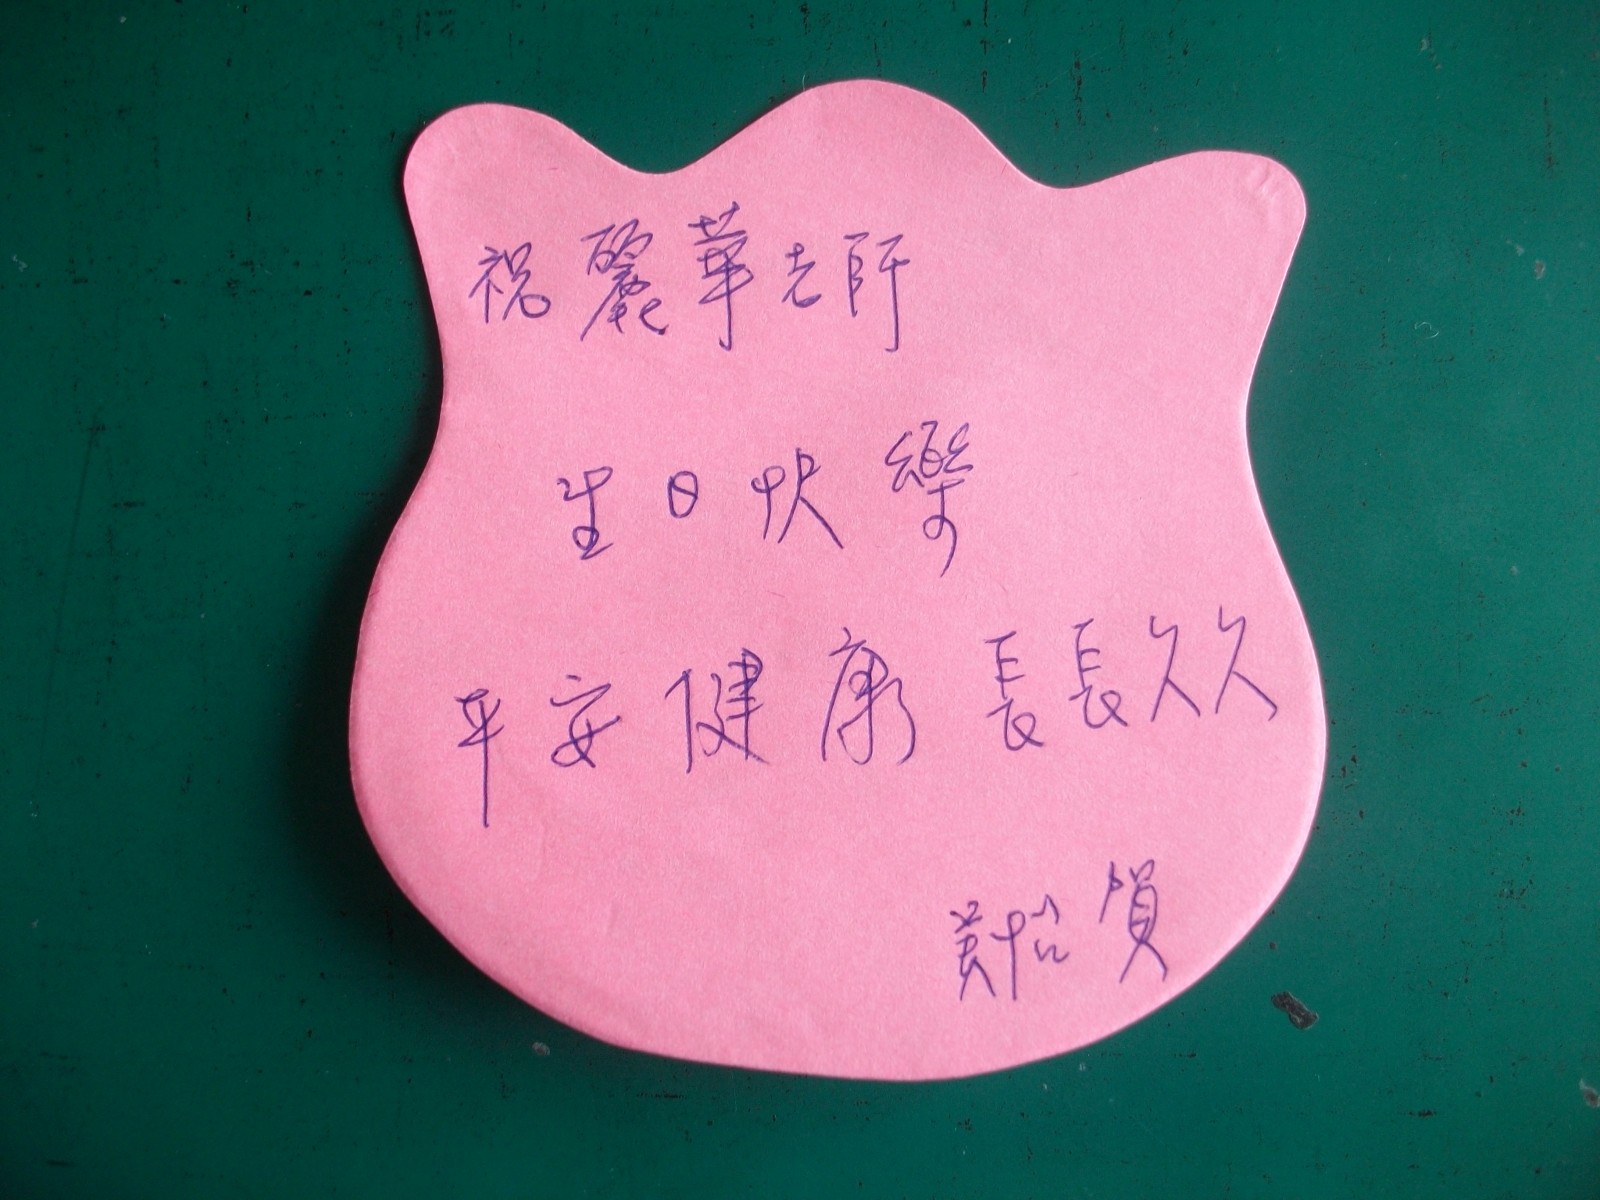 祝麗華老師
生日快樂
平安健康長長久久
賀